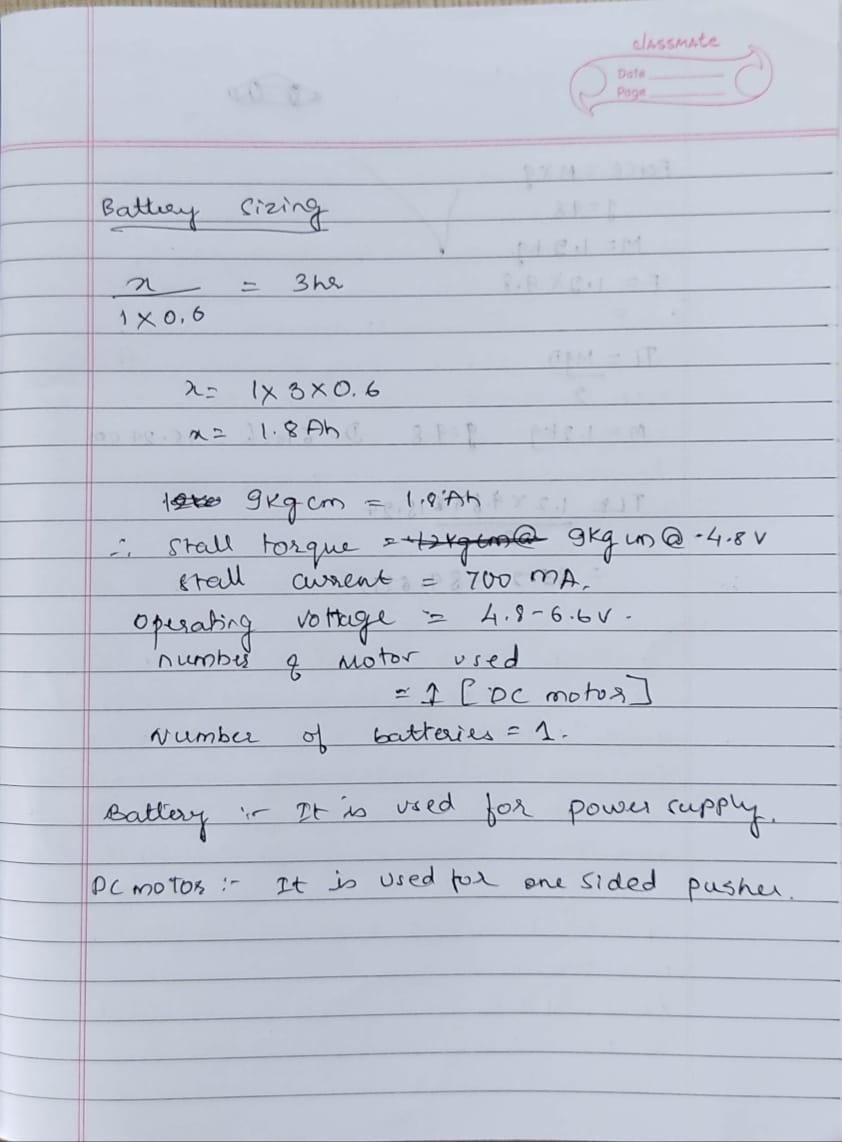 classmate
Date
Page
Battery sizing
x / 1 × 0.6 = 3hr
x = 1 × 3 × 0.6
x = 1.8 Ah
9kg cm = 1.8 Ah
∴ stall torque = 9kg cm @ -4.8 V
stall current = 700 mA.
operating voltage = 4.8-6.6V.
number of Motor used
= 1 [DC motor]
Number of batteries = 1.
Battery :- It is used for power supply.
DC motor :- It is used for one sided pusher.